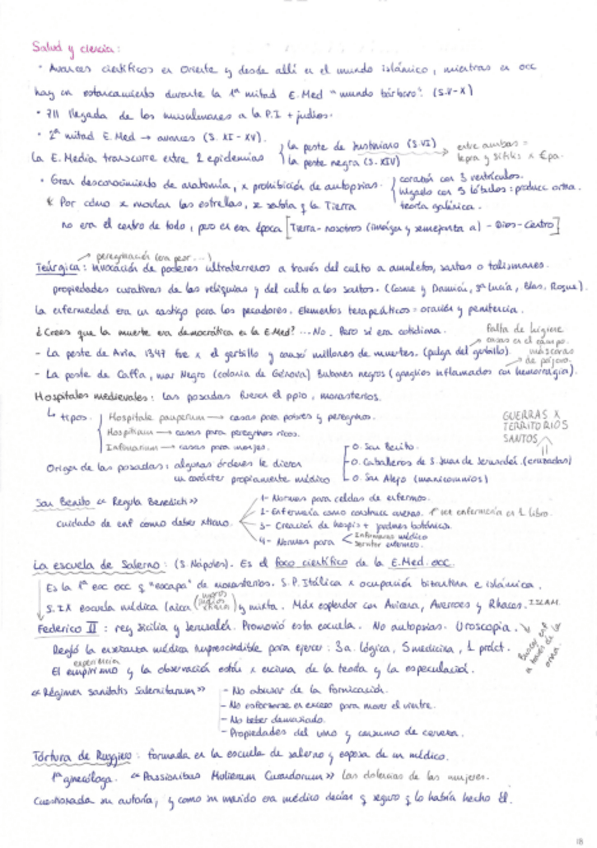 Salud y ciencia:
· Avances científicos en Oriente y desde allí en el mundo islámico, mientras en occ
hay un estancamiento durante la 1ª mitad E.Med "mundo bárbaro". (S.V-X)
· 711 llegada de los musulmanes a la P.I + judíos.
· 2ª mitad E.Med → avances (S. XI - XV).
La E.Media transcurre entre 2 epidemias { la peste de Justiniano (S.VI)
la peste negra (S. XIV)
entre ambas =
lepra y Sífilis x €pa.
· Gran desconocimiento de anatomía, x prohibición de autopsias. { corazón con 3 ventrículos.
hígado con 5 lóbulos: produce orina.
teoría galénica.
* Por cómo x movían las estrellas, x sabía q la Tierra
no era el centro de todo, pero en esa época [Tierra - nosotros (imagen y semejanza a) - Dios - Centro]
→ peregrinación (era peor...)
Teúrgica: invocación de poderes ultraterrenos a través del culto a amuletos, santos o talismanes.
propiedades curativas de las reliquias y del culto a los santos. (Cosme y Damián, Sª Lucía, Blas, Roque).
La enfermedad era un castigo para los pecadores. Elementos terapéuticos = oración y penitencia.
¿Crees que la muerte era democrática en la E.Med? ... No. Pero sí era cotidiana.
Falta de higiene
casas en el campo.
- La peste de Asia 1347 fue x el gerbillo y causó millones de muertes. (pulga del gerbillo).
máscaras
de pájaro.
- La peste de Caffa, mar Negro (colonia de Génova) Bubones negros (ganglios inflamados con hemorragia).
Hospitales medievales: las posadas fueron el ppio, monasterios.
↳ tipos. { Hospitale pauperum → casas para pobres y peregrinos.
Hospitium → casas para peregrinos ricos.
Infirmarium → casas para monjes.
GUERRAS X
TERRITORIOS
SANTOS
Origen de las posadas: algunas órdenes le dieron
un carácter propiamente médico
O. San Benito.
O. Caballeros de S. Juan de Jerusalén. (cruzadas)
O. San Alejo (manicomios)
San Benito « Regula Benedicti »
cuidado de enf como deber xtiano.
1- Normas para celdas de enfermos.
2- Enfermería como construcc anexa.
1ª ver enfermería en 1 libro.
3- Creación de hospis + jardines botánicos.
4- Normas para < Enfermeros médico
servitor enfermos.
La escuela de Salerno: (S Nápoles). Es el foco científico de la E.Med. occ.
Es la 1ª esc occ q "escapa" de monasterios. S.P. Itálica x ocupación bizantina e islámica.
S. IX escuela médica laica (moros judíos) y mixta. Máx esplendor con Avicena, Averroes y Rhazes. ISLAM.
Federico II: rey Sicilia y Jerusalén. Promovió esta escuela. No autopsias. Uroscopia.
Buscar enf
a través de la
orina.
Reguló la enseñanza médica imprescindible para ejercer: 3a. lógica, 5 medicina, 1 práct.
experiencia
El empirismo y la observación están x encima de la teoría y la especulación.
« Régimen sanitatis Salernitanum »
- No abusar de la fornicación.
- No esforzarse en exceso para mover el vientre.
- No beber demasiado.
- Propiedades del vino y consumo de cerveza.
Tórtura de Ruggiero: formada en la escuela de salerno y esposa de un médico.
1ª ginecóloga. « Passionibus Mulierum Curandorum » Las dolencias de las mujeres.
Cuestionada su autoría, y como su marido era médico decían q seguro q lo había hecho él.
18